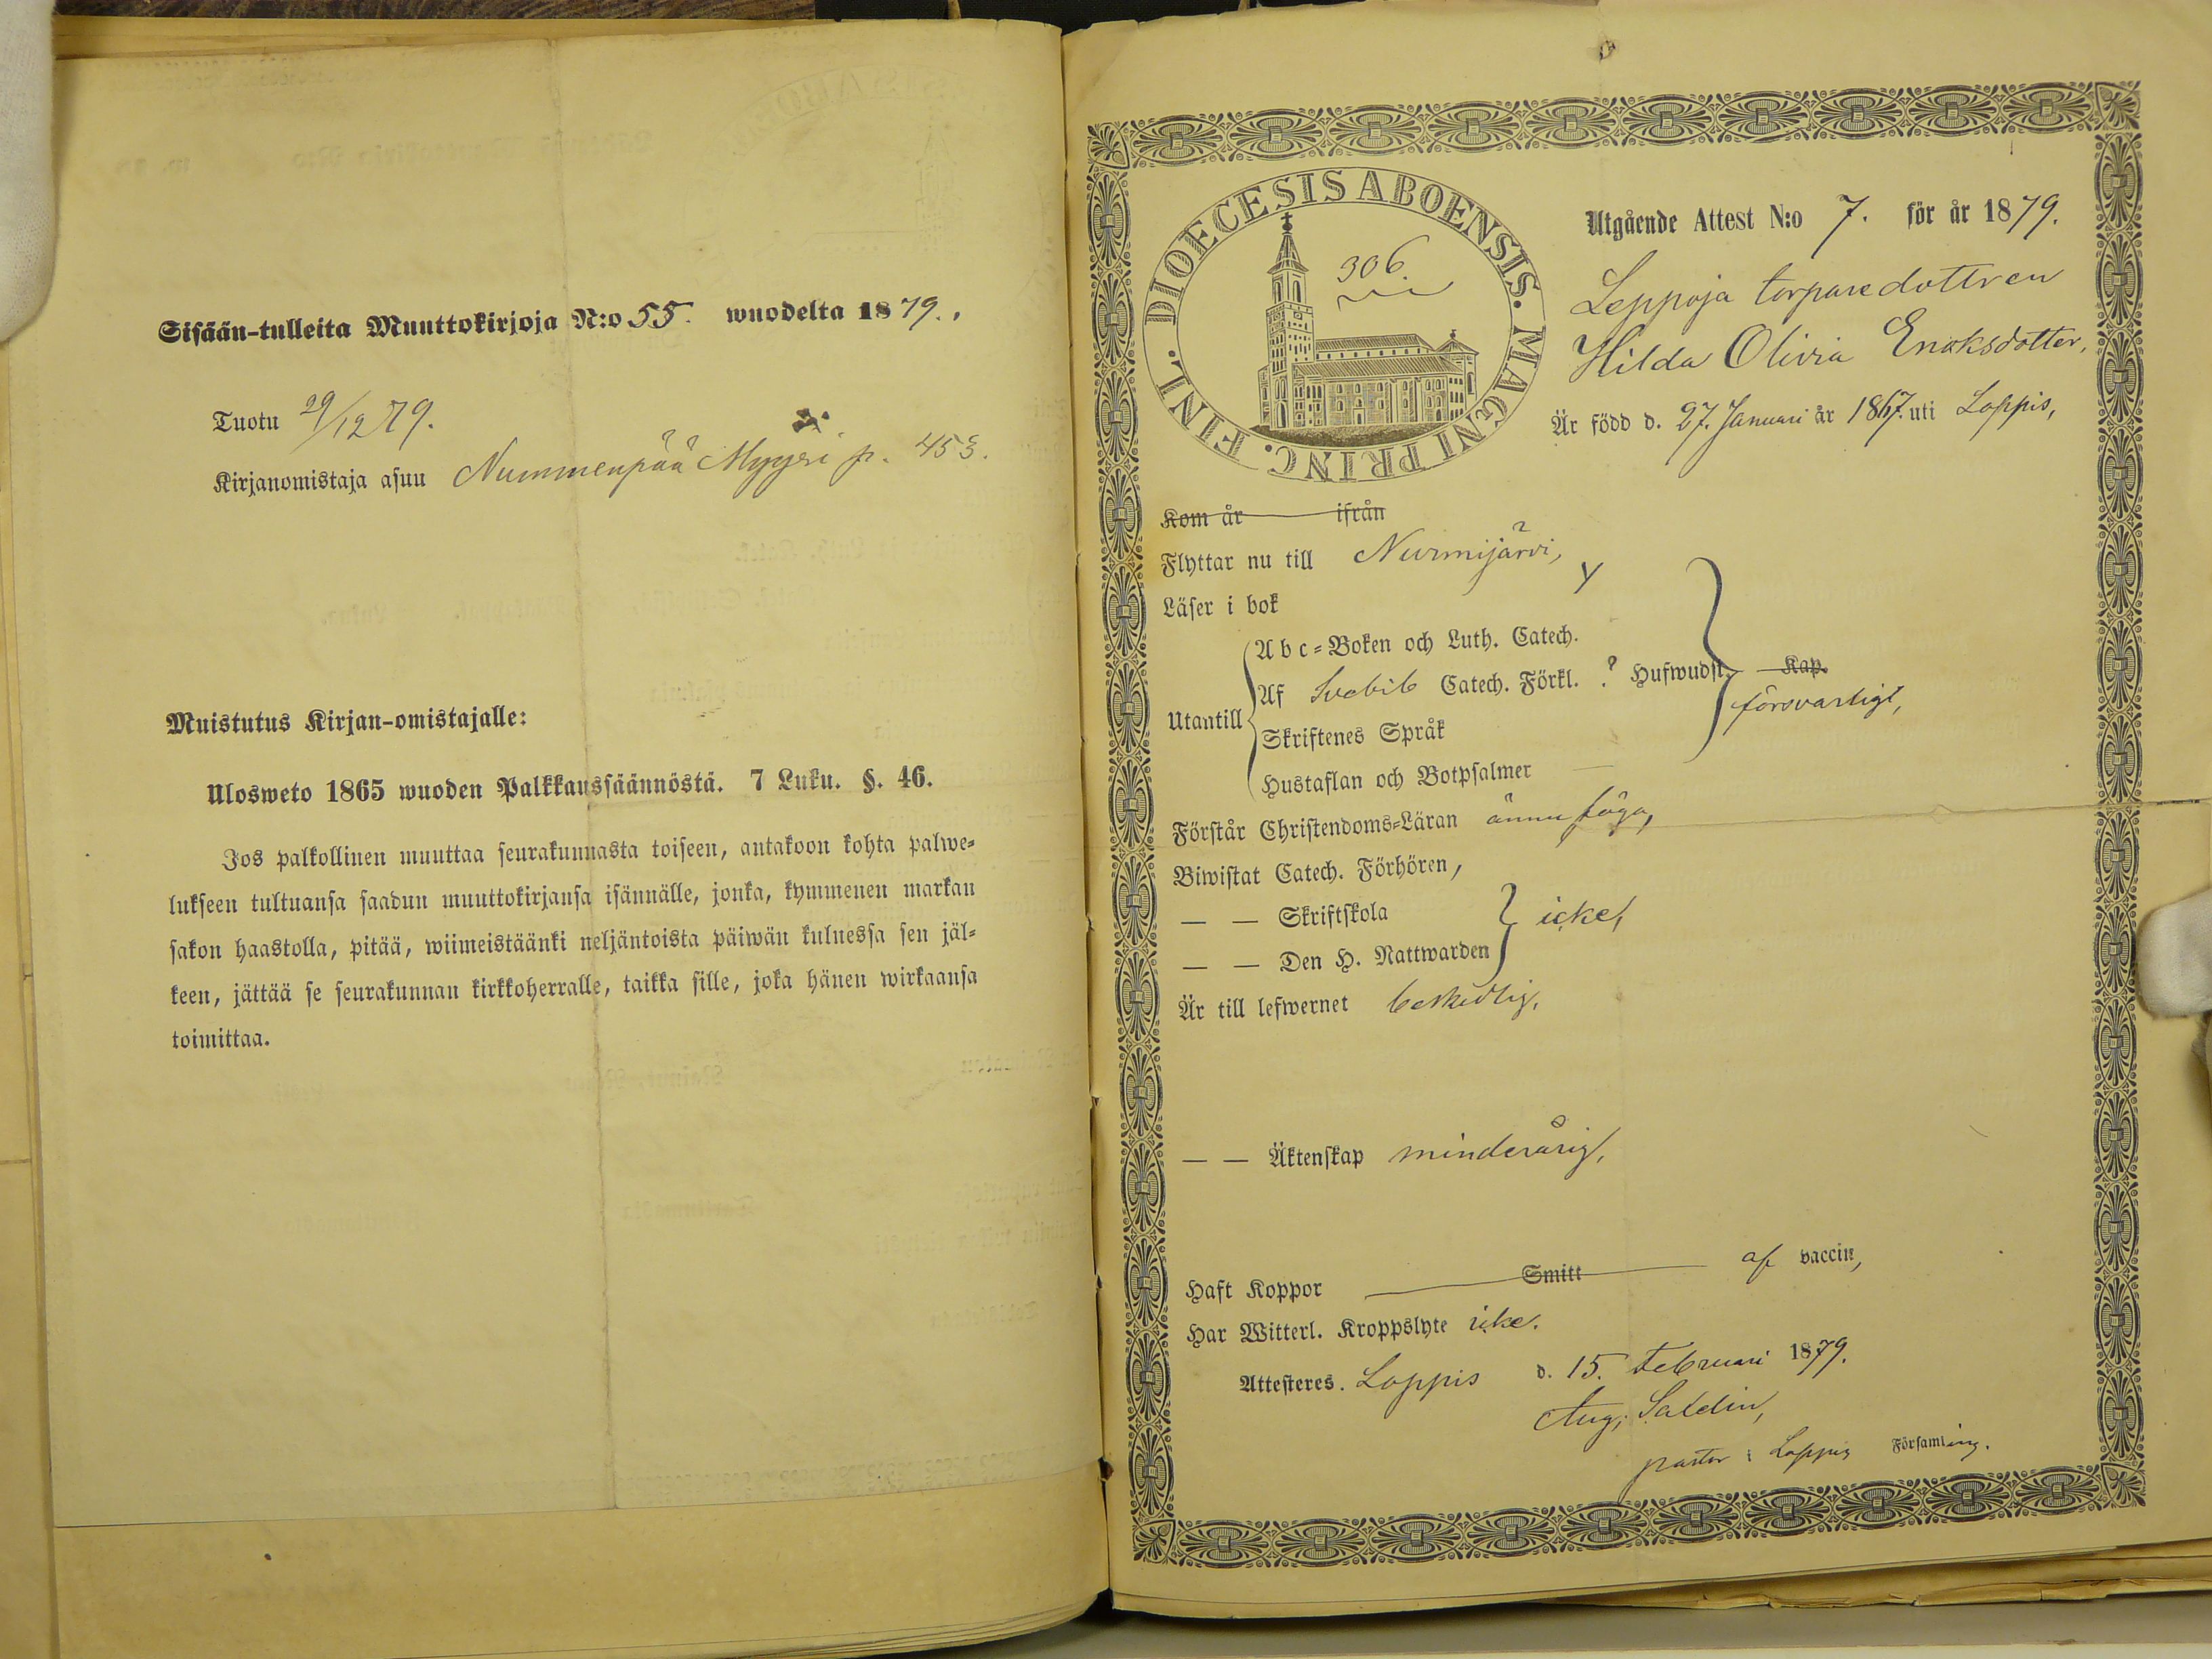 Sisään-tulleita Muuttokirjoja N:o 55. wuodelta 1879.
Tuotu 29/12 79.
Kirjanomistaja asuu Nummenpää Myyri p. 453.
Muistutus Kirjan-omistajalle:
Ulosweto 1865 wuoden Palkkaussäännöstä. 7 Luku. §. 46.
Jos palkollinen muuttaa seurakunnasta toiseen, antakoon kohta palwe-
lukseen tultuansa saadun muuttokirjansa isännälle, jonka, kymmenen markan
sakon haastolla, pitää, wiimeistäänki neljäntoista päiwän kuluessa sen jäl-
keen, jättää se seurakunnan kirkkoherralle, taikka sille, joka hänen wirkaansa
toimittaa.
DIOECESIS ABOENSIS. MAGNI PRINC. FINL.
306.
Utgående Attest N:o 7. för år 1879.
Leppoja torparedottren
Hilda Olivia Enoksdotter,
Är född d. 27. Januari år 1867. uti Loppis,
Kom år ifrån
Flyttar nu till Nurmijärvi,
Läser i bok
Utantill
Abc-Boken och Luth. Catech.
Af Svebil: Catech. Förkl. ? Hufwudst. Kap.
försvarligt,
Skriftenes Språk
Hustaflan och Botpsalmer —
Förstår Christendoms-Läran ännu föga,
Biwistat Catech. Förhören,
— — Skriftskola
icke,
— — Den H. Nattwarden
Är till lefwernet beskedlig,
— — Äktenskap minderårig,
Haft Koppor Smitt af vaccin,
Har Witterl. Kroppslyte icke.
Attesteres. Loppis d. 15. Februari 1879.
Aug; Saldin,
pastor i Loppis Församling.